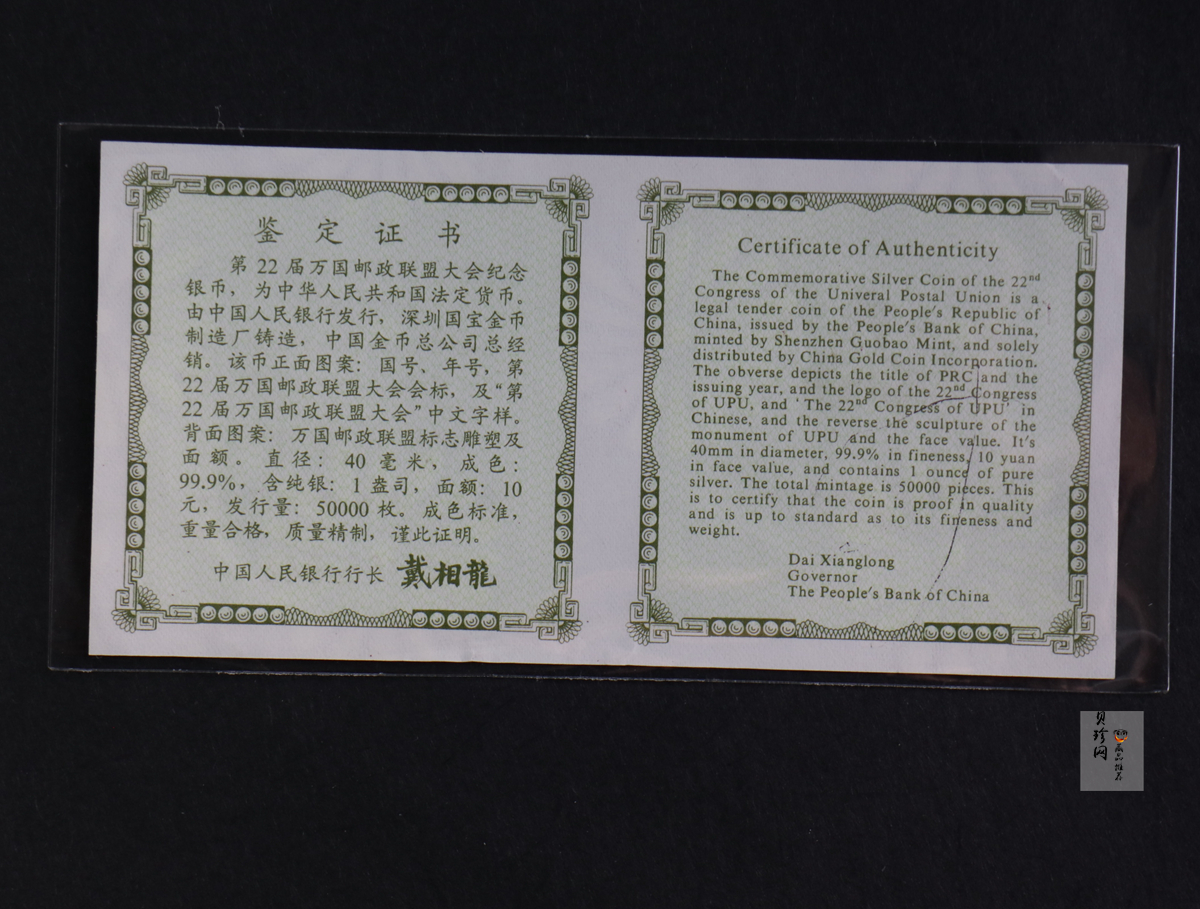 鉴定证书
第22届万国邮政联盟大会纪念
银币，为中华人民共和国法定货币。
由中国人民银行发行，深圳国宝金币
制造厂铸造，中国金币总公司总经
销。该币正面图案：国号、年号，第
22届万国邮政联盟大会会标，及“第
22届万国邮政联盟大会”中文字样。
背面图案：万国邮政联盟标志雕塑及
面额。直径：40毫米，成色：
99.9%，含纯银：1盎司，面额：10
元，发行量：50000枚。成色标准，
重量合格，质量精制，谨此证明。
中国人民银行行长 戴相龍
Certificate of Authenticity
The Commemorative Silver Coin of the 22nd
Congress of the Univeral Postal Union is a
legal tender coin of the People's Republic of
China, issued by the People's Bank of China,
minted by Shenzhen Guobao Mint, and solely
distributed by China Gold Coin Incorporation.
The obverse depicts the title of PRC and the
issuing year, and the logo of the 22nd Congress
of UPU, and 'The 22nd Congress of UPU' in
Chinese, and the reverse the sculpture of the
monument of UPU and the face value. It's
40mm in diameter, 99.9% in fineness, 10 yuan
in face value, and contains 1 ounce of pure
silver. The total mintage is 50000 pieces. This
is to certify that the coin is proof in quality
and is up to standard as to its fineness and
weight.
Dai Xianglong
Governor
The People's Bank of China
贝珍网
藏品推荐